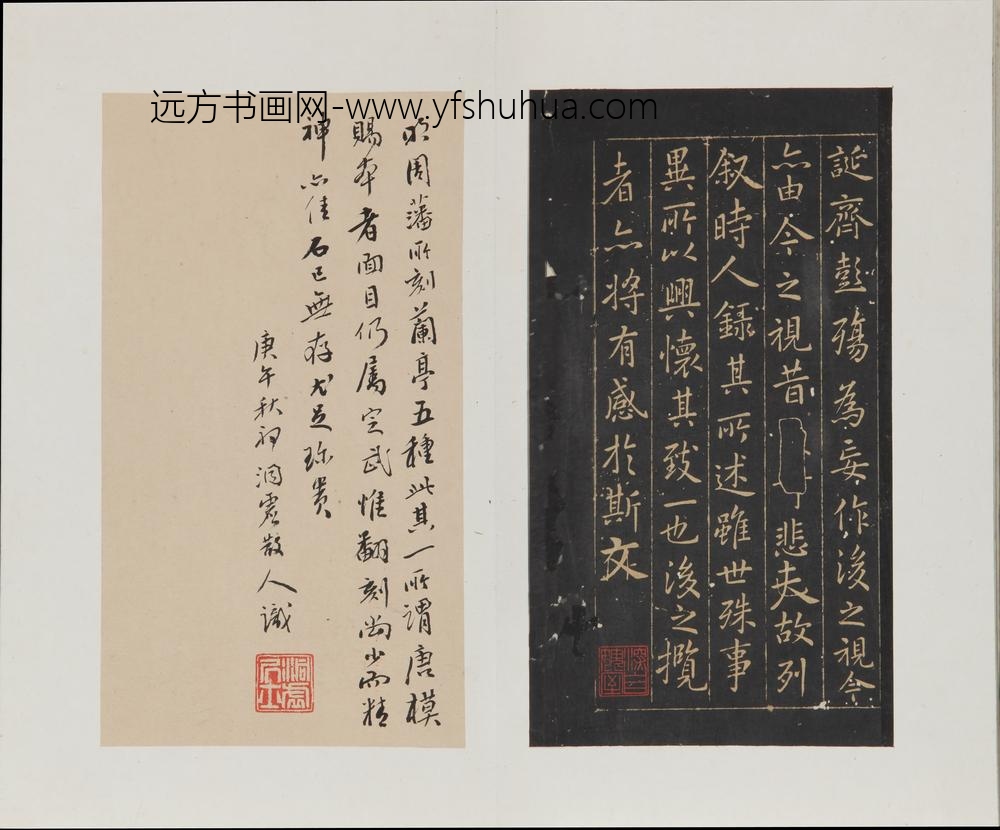 远方书画网-www.yfshuhua.com
誕齊彭殤為妄作後之視今
亦由今之視昔悲夫故列
叙時人錄其所述雖世殊事
異所以興懷其致一也後之攬
者亦將有感於斯文
明周藩所刻蘭亭五種此其一所謂唐模
賜本者面目仍屬定武惟翻刻尚少而精
神亦佳石已無存尤足珍貴
庚午秋初洞虛散人識